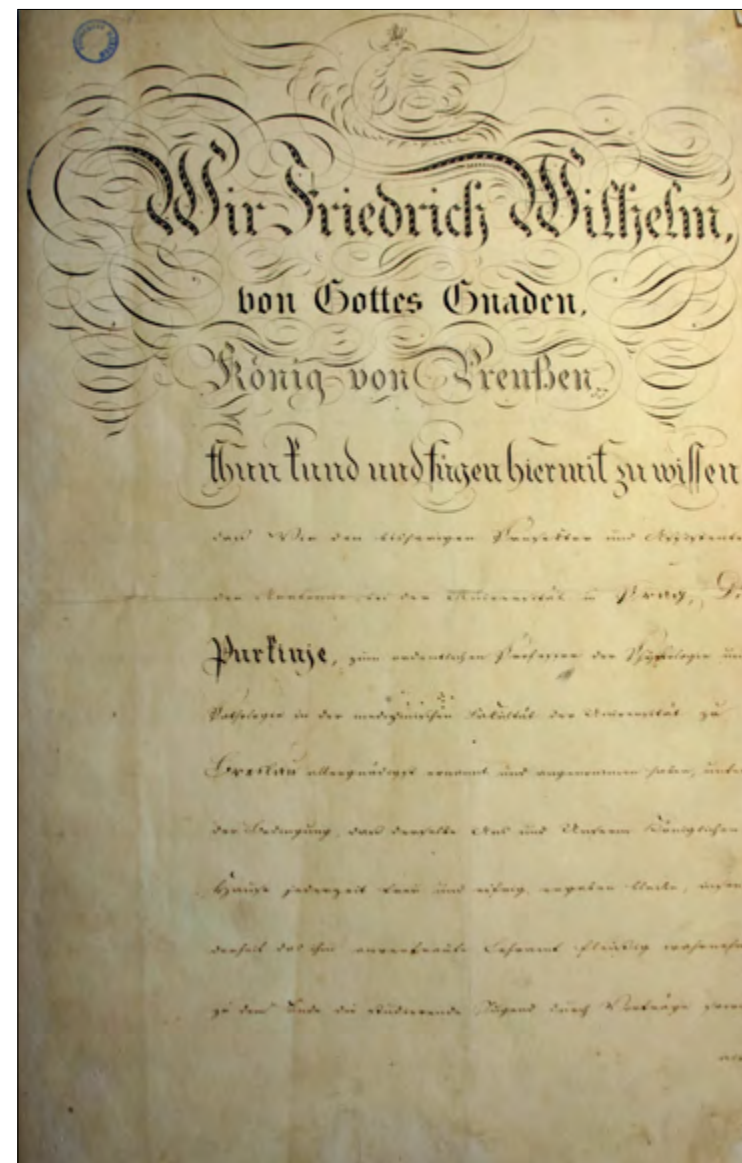 Wir Friedrich Wilhelm,
von Gottes Gnaden,
König von Preußen
thun kund und fügen hiermit zu wissen
daß Wir den bisherigen Prosektor und
der Anatomie, bei der Universität in Prag,
Purkinje, zum ordentlichen Professor der Physiologie
Pathologie in der medizinischen Fakultät der Universität zu
Breslau allergnädigst ernannt und angenommen haben,
der Bedingung, daß derselbe Uns und Unserm Königlichen
Hause jederzeit treu und eifrig ergeben bleibe,
das ihm anvertraute Lehramt fleißig
zu dem Ende die studierende Jugend durch Vorträge